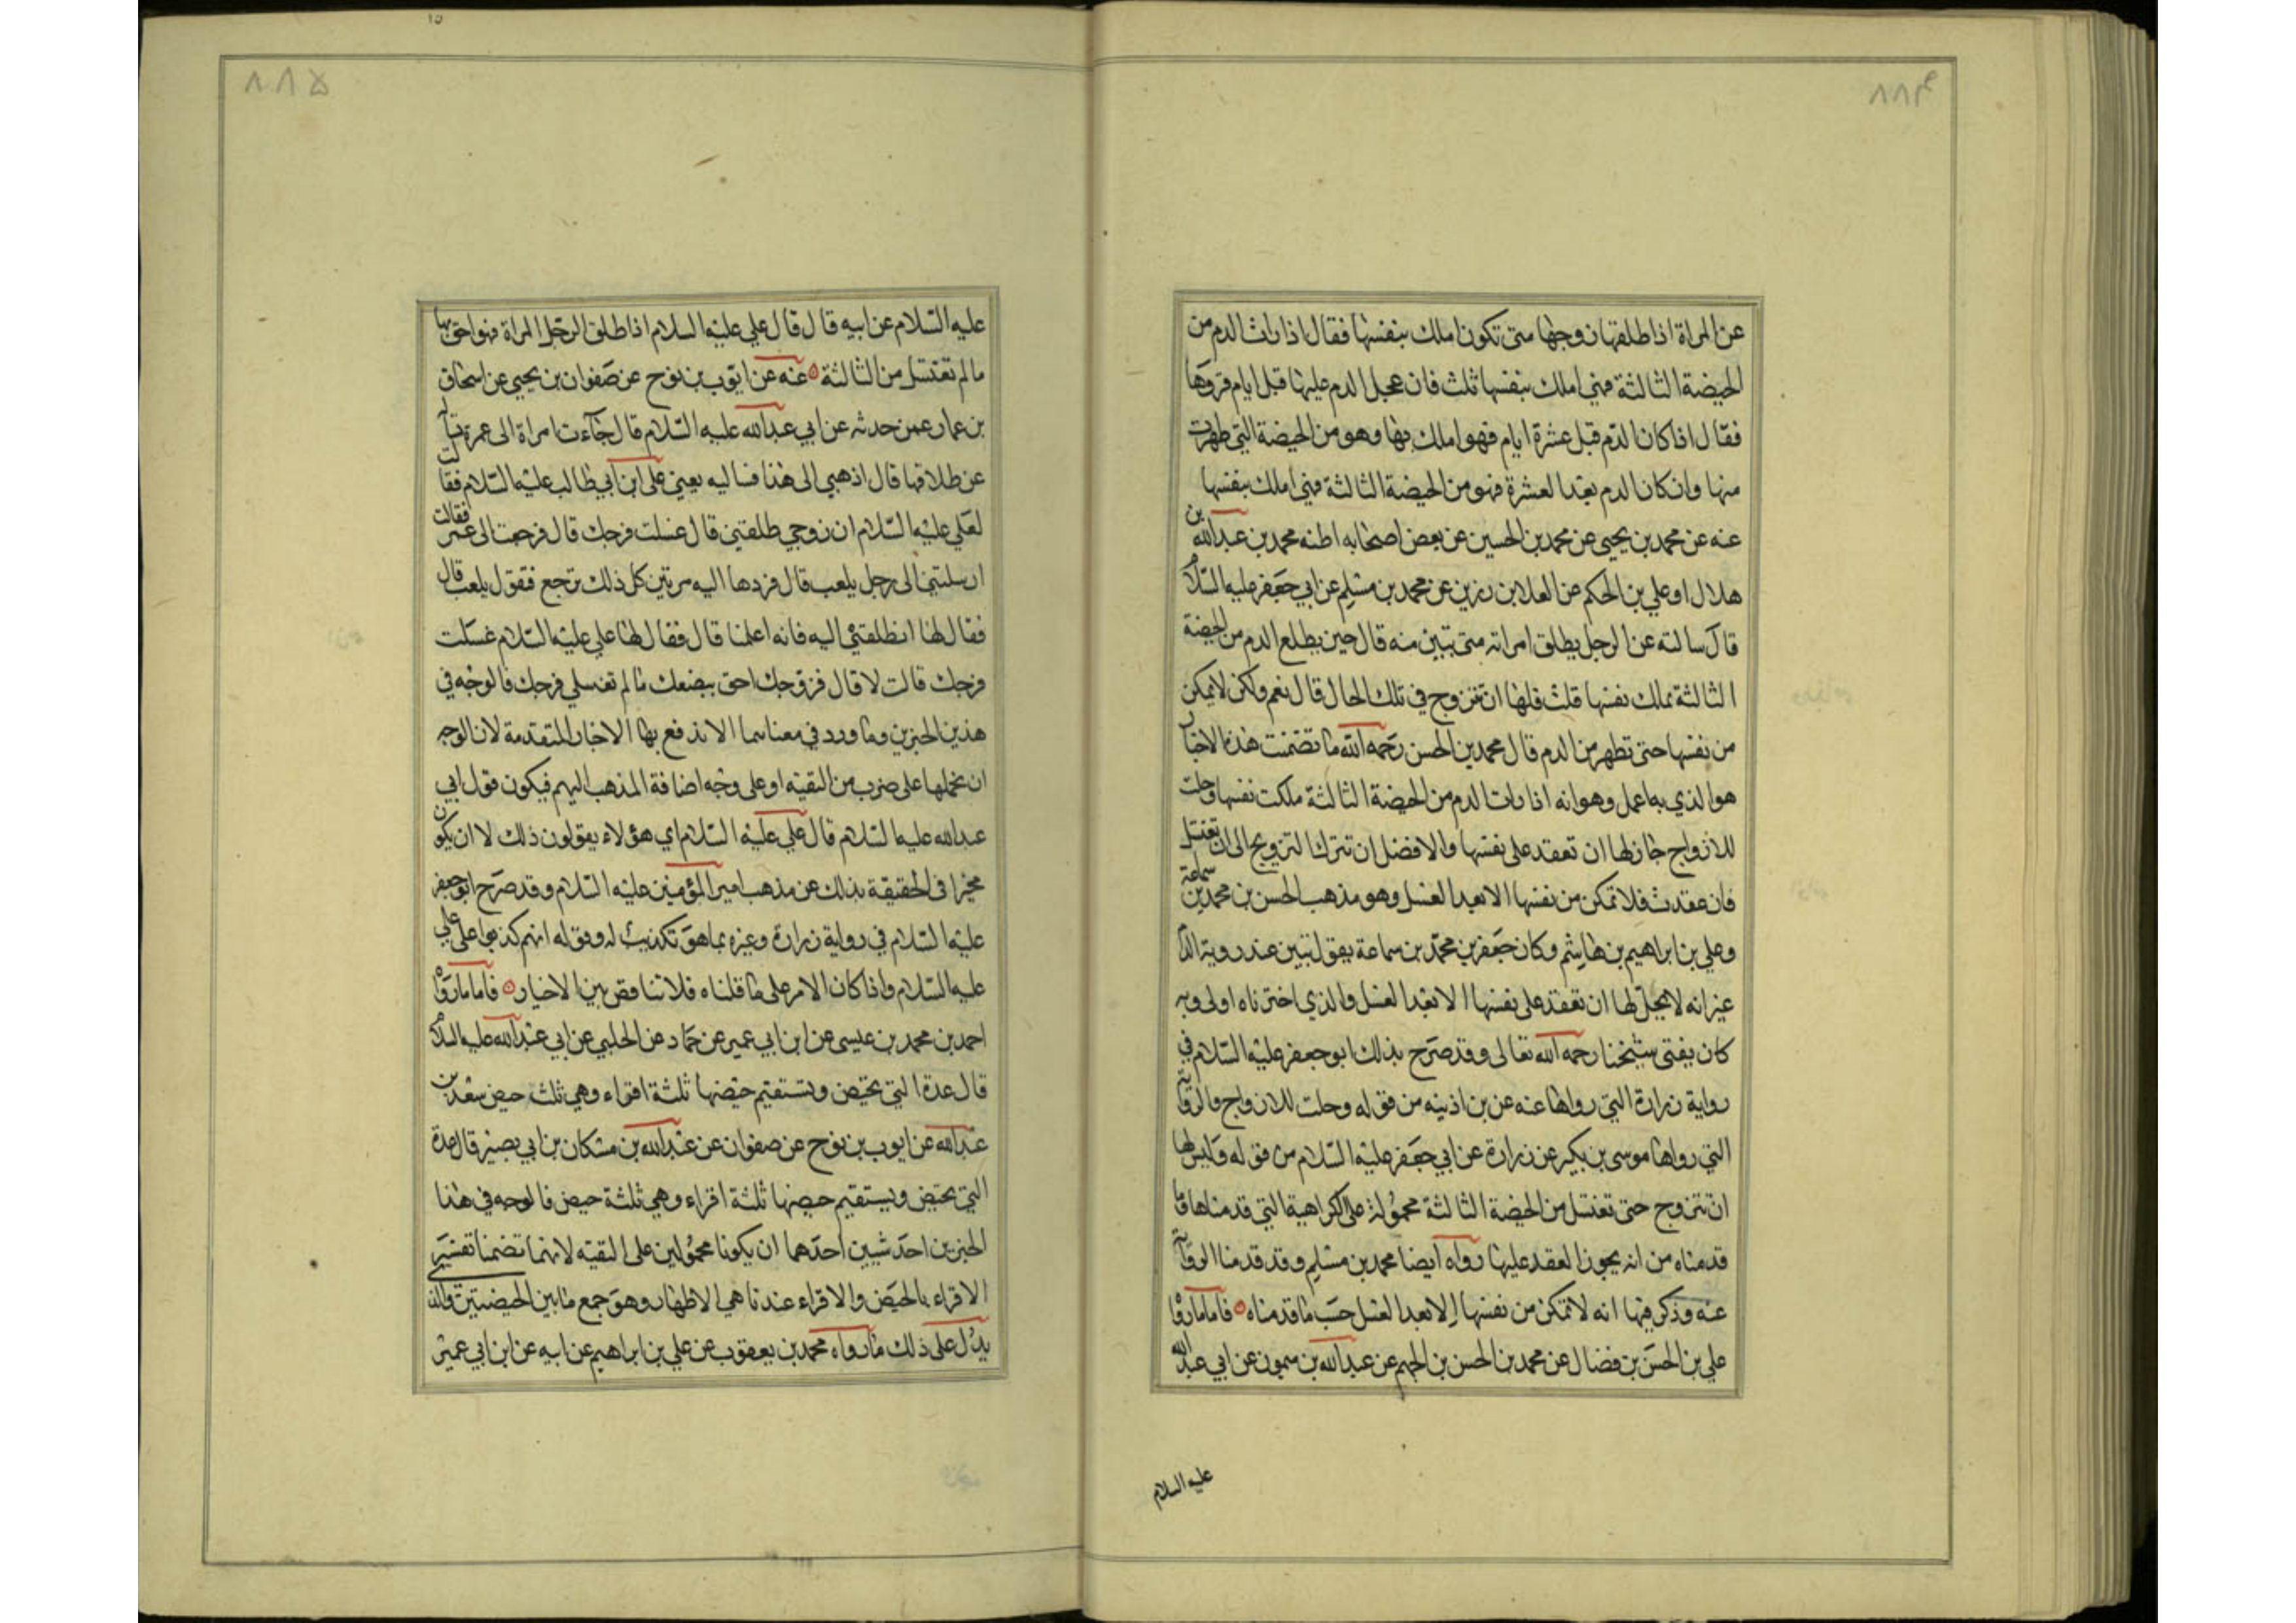 ۸۸۴
عن المراة اذا طلقها زوجها متى تكون املك بنفسها فقال اذا رات الدم من
الحيضة الثالثة فهي املك بنفسها ثلث فان عجل الدم عليها قبل ايام قروءها
فقال اذا كان الدم قبل عشرة ايام فهو املك بها وهو من الحيضة التي طهرت
منها وان كان الدم بعد العشرة فهو من الحيضة الثالثة فهي املك بنفسها
عنه عن محمد بن يحيى عن محمد بن الحسين عن بعض اصحابه اظنه محمد بن عبدالله بن
هلال او علي بن الحكم عن العلا بن رزين عن محمد بن مسلم عن ابي جعفر عليه السلام
قال سالته عن الرجل يطلق امراته متى تبين منه قال حين يطلع الدم من الحيضة
الثالثة تملك نفسها قلت فلها ان تتزوج في تلك الحال قال نعم ولكن لا يمكن
من نفسها حتى تطهر من الدم قال محمد بن الحسن رحمه الله ما تضمنت هذه الاخبار
هو الذي به اعمل وهو انه اذا رات الدم من الحيضة الثالثة ملكت نفسها وحلت
للازواج جاز لها ان تعقد على نفسها والافضل ان تترك التزويج الى ان تغتسل
فان عقدت فلا تمكن من نفسها الا بعد الغسل وهو مذهب الحسن بن محمد بن سماعة
وعلي بن ابراهيم بن هاشم وكان جعفر بن محمد بن سماعة يقول تبين عند روية الدم
غير انه لا يحل لها ان تعقد على نفسها الا بعد الغسل والذي اخترناه اولى وبه
كان يفتى شيخنا رحمه الله تعالى وقد صرح بذلك ابو جعفر عليه السلام في
رواية زرارة التي رواها عنه عن بن اذينه من قوله وحلت للازواج والرواية
التي رواها موسى بن بكير عن زرارة عن ابي جعفر عليه السلام من قوله وليس لها
ان تتزوج حتى تغتسل من الحيضة الثالثة محمولة على الكراهية التي قدمناها وما
قدمناه من انه يجوز العقد عليها رواه ايضا محمد بن مسلم وقد قدمنا الرواية
عنه وذكر فيها انه لا تمكن من نفسها الا بعد الغسل حسب ما قدمناه فاما ما رواه
علي بن الحسن بن فضال عن محمد بن الحسن بن الجهم عن عبدالله بن ميمون عن ابي عبدالله
عليه السلام
۸۸۵
عليه السلام عن ابيه قال قال علي عليه السلام اذا طلق الرجل المراة فهو احق بها
ما لم تغتسل من الثالثة عنه عن ايوب بن نوح عن صفوان بن يحيى عن اسحاق
بن عمار عمن حدثه عن ابي عبدالله عليه السلام قال جآءت امراة الى عمر تسال
عن طلاقها قال اذهبي الى هذا فساليه يعني علي ابن ابي طالب عليه السلام فقالت
لعلي عليه السلام ان زوجي طلقني قال غسلت فرجك قال فرجعت الى عمر فقالت
ارسلتني الى رجل يلعب قال فردها اليه مرتين كل ذلك ترجع فتقول يلعب قال
فقال لها انطلقتي اليه فانه اعلمنا قال فقال لها علي عليه السلام غسلت
فرجك قالت لا قال فزوجك احق ببضعك ما لم تغسلي فرجك فالوجه في
هذين الخبرين وما ورد في معناهما الا ندفع بها الاخبار المتقدمة لان الوجه
ان نحملها على ضرب من التقيه او على وجه اضافة المذهب اليهم فيكون قول ابي
عبدالله عليه السلام قال علي عليه السلام اي هؤلاء يقولون ذلك لا ان يكون
مخبرا في الحقيقة بذلك عن مذهب امير المؤمنين عليه السلام وقد صرح ابو جعفر
عليه السلام في رواية زرارة وغيره بما هو تكذيب له وقوله انهم كذبوا على علي
عليه السلام واذا كان الامر على ما قلناه فلا تناقض بين الاخبار فاما ما رواه
احمد بن محمد بن عيسى عن ابن ابي عمير عن حماد عن الحلبي عن ابي عبدالله عليه السلام
قال عدة التي تحيض وتستقيم حيضها ثلثة اقراء وهي ثلث حيض سعد بن
عبدالله عن ايوب بن نوح عن صفوان عن عبدالله بن مسكان بن ابي بصير قال عدة
التي تحيض ويستقيم حيضها ثلثة اقراء وهي ثلثة حيض فالوجه في هذا
الخبرين احد شيين احدهما ان يكونا محمولين على التقيه لانهما تضمنا تفسير
الاقراء بالحيض والاقراء عندنا هي الاطهار وهو جمع ما بين الحيضتين والذي
يدل على ذلك ما رواه محمد بن يعقوب عن علي بن ابراهيم عن ابيه عن ابن ابي عمير